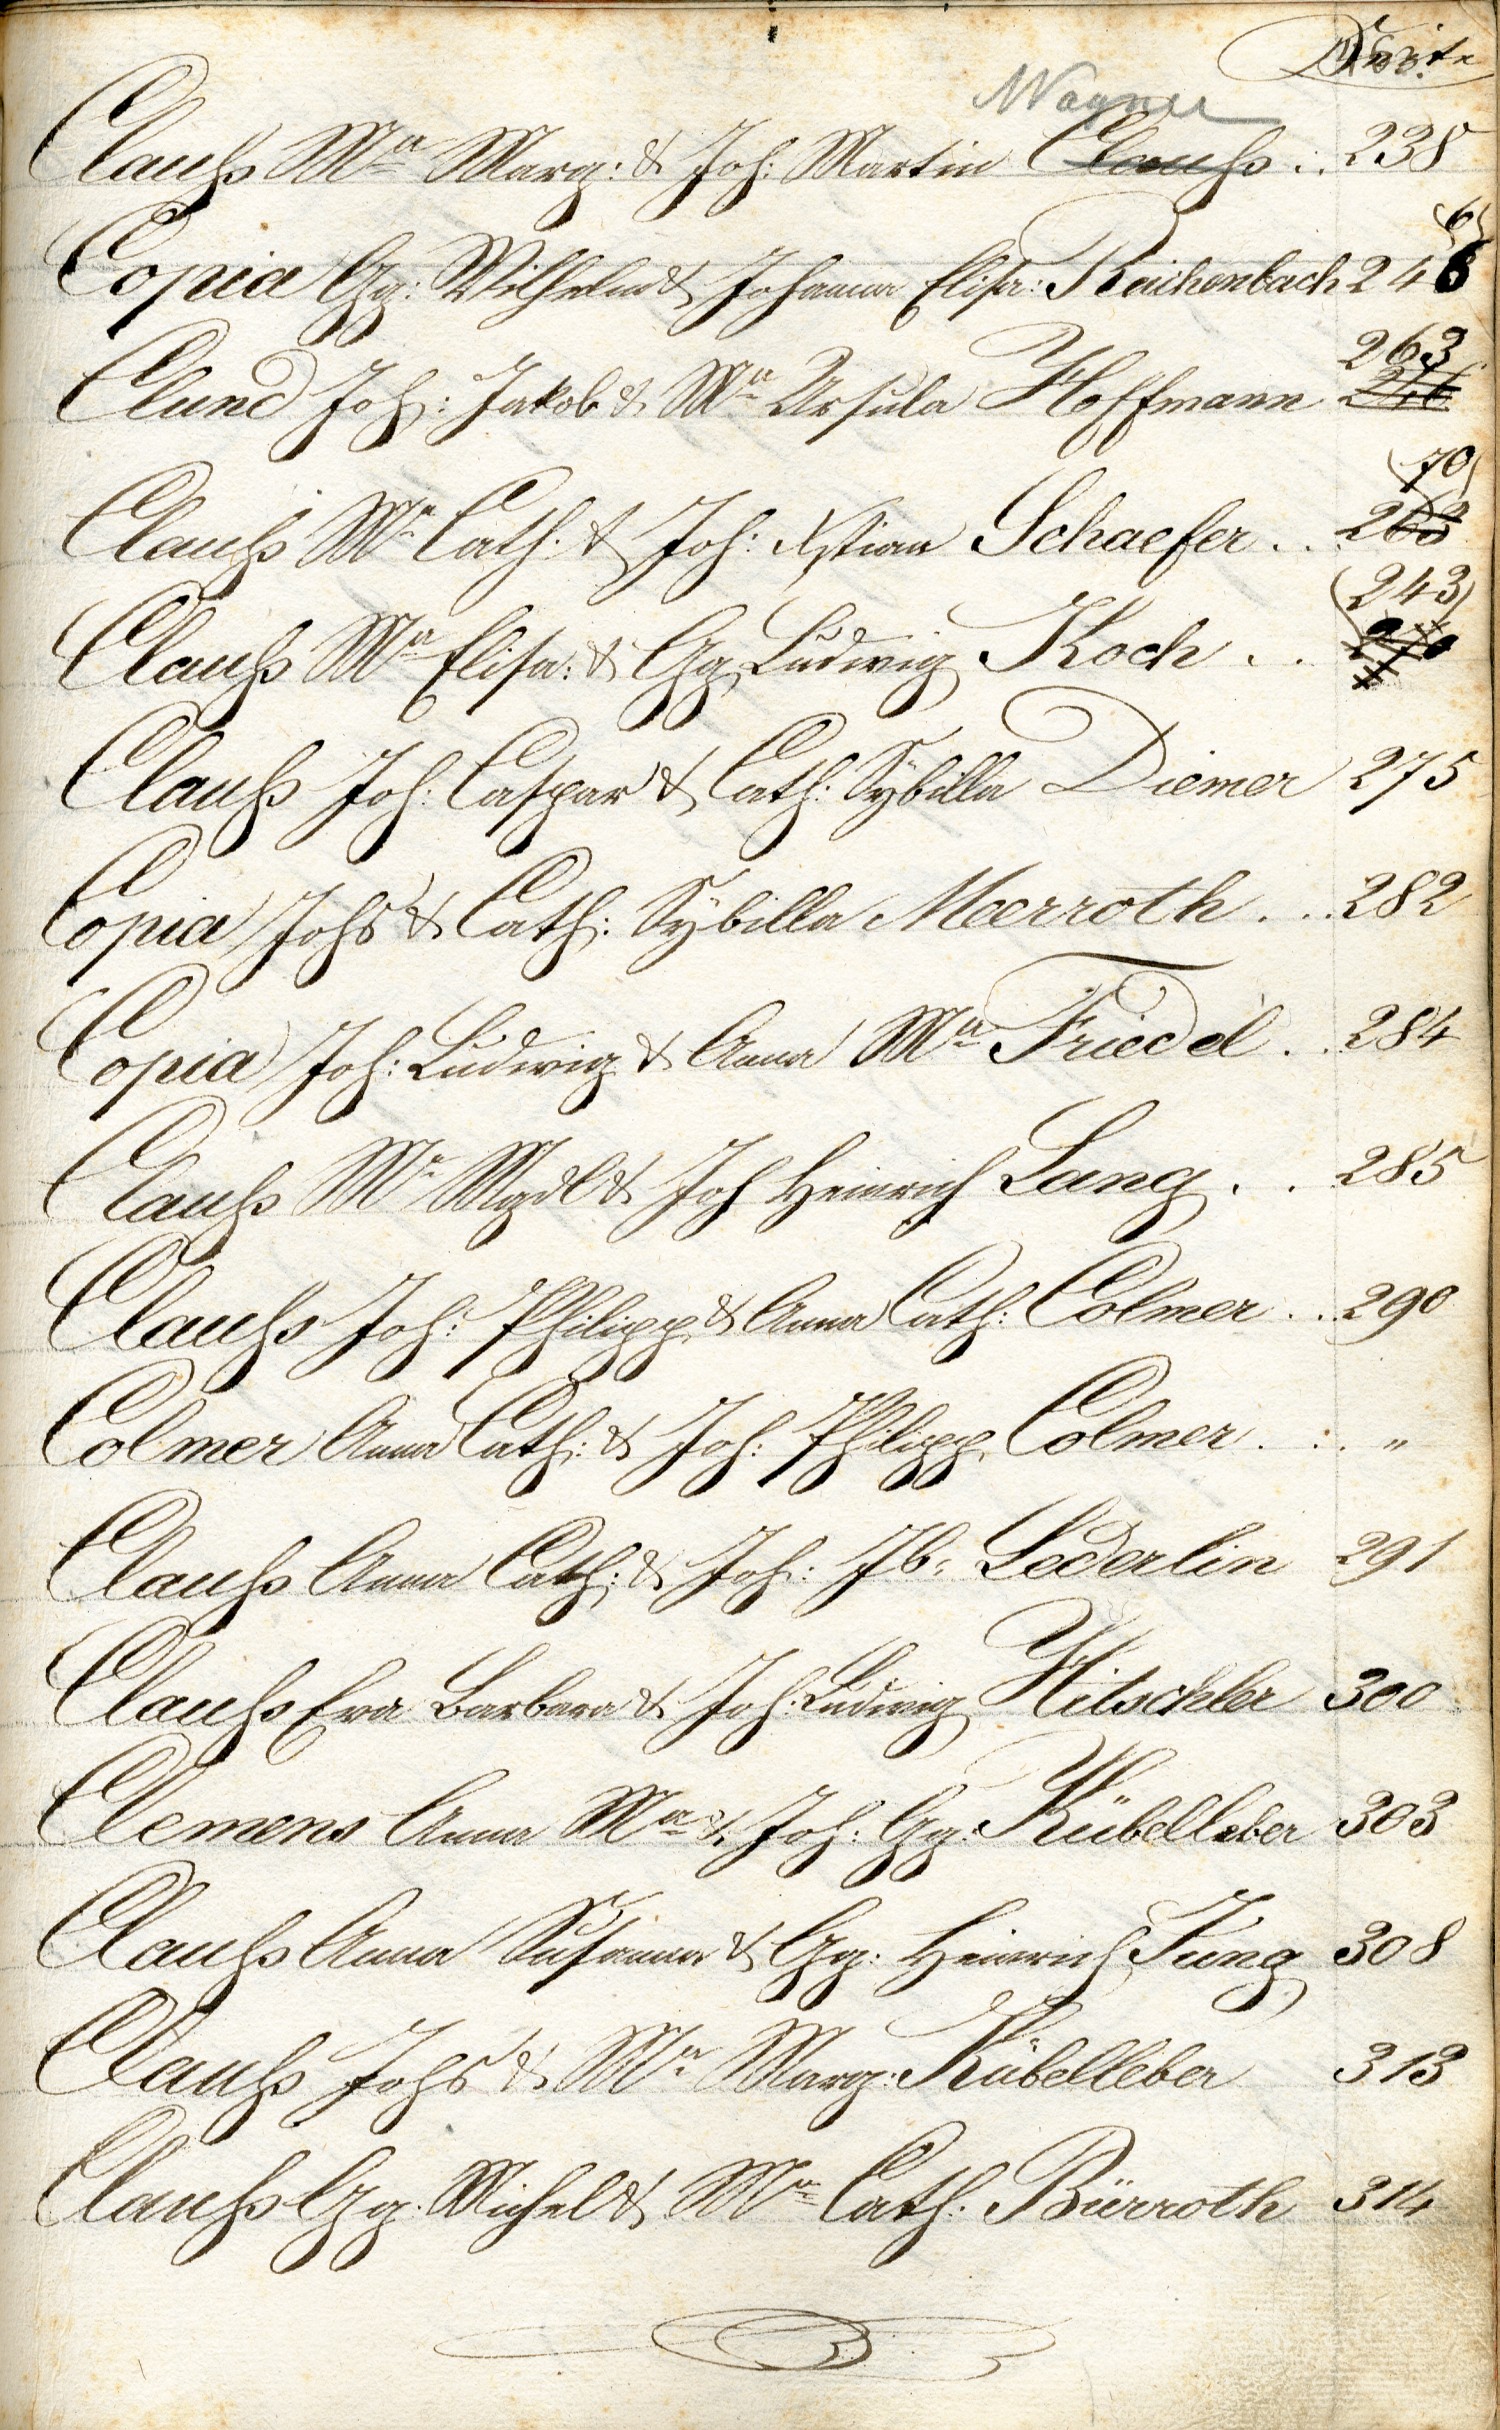 Seite
Wagner
Clauß Ma Marg: & Joh: Martin Clauß .. 238
(6)
Copia Gg: Wilhelm & Johanna Elisa: Reichenbach 246
263
Clund Joh: Jakob & Ma Ursula Hoffmann 246
(70)
Clauß Ma Cath. & Joh: Xstian Schaefer . . 263
(243)
Clauß Ma Elisa: & Gg Ludwig Koch . . 270
Clauß Joh: Caspar & Cath: Sÿbilla Diemer 275
Copia Johs & Cath: Sÿbilla Meerroth . . . 282
Copia Joh: Ludwig & Anna Ma Friedel . . 284
Clauß Ma Mgdl & Joh Heinrich Lang . . 285
Clauß Joh: Philipp & Anna Cath: Colmer . . . 290
Colmer Anna Cath: & Joh: Philipp Colmer . . . "
Clauß Anna Cath: & Joh: Jb: Lederlin 291
Clauß Eva Barbara & Joh: Ludwig Hitschler 300
Clemens Anna Ma & Joh: Gg: Kübelleber 303
Clauß Anna Susanna & Gg: Heinrich Jung 308
Clauß Johs & Ma Marg: Kübelleber 313
Clauß Gg: Michel & Ma Cath: Bürroth 314